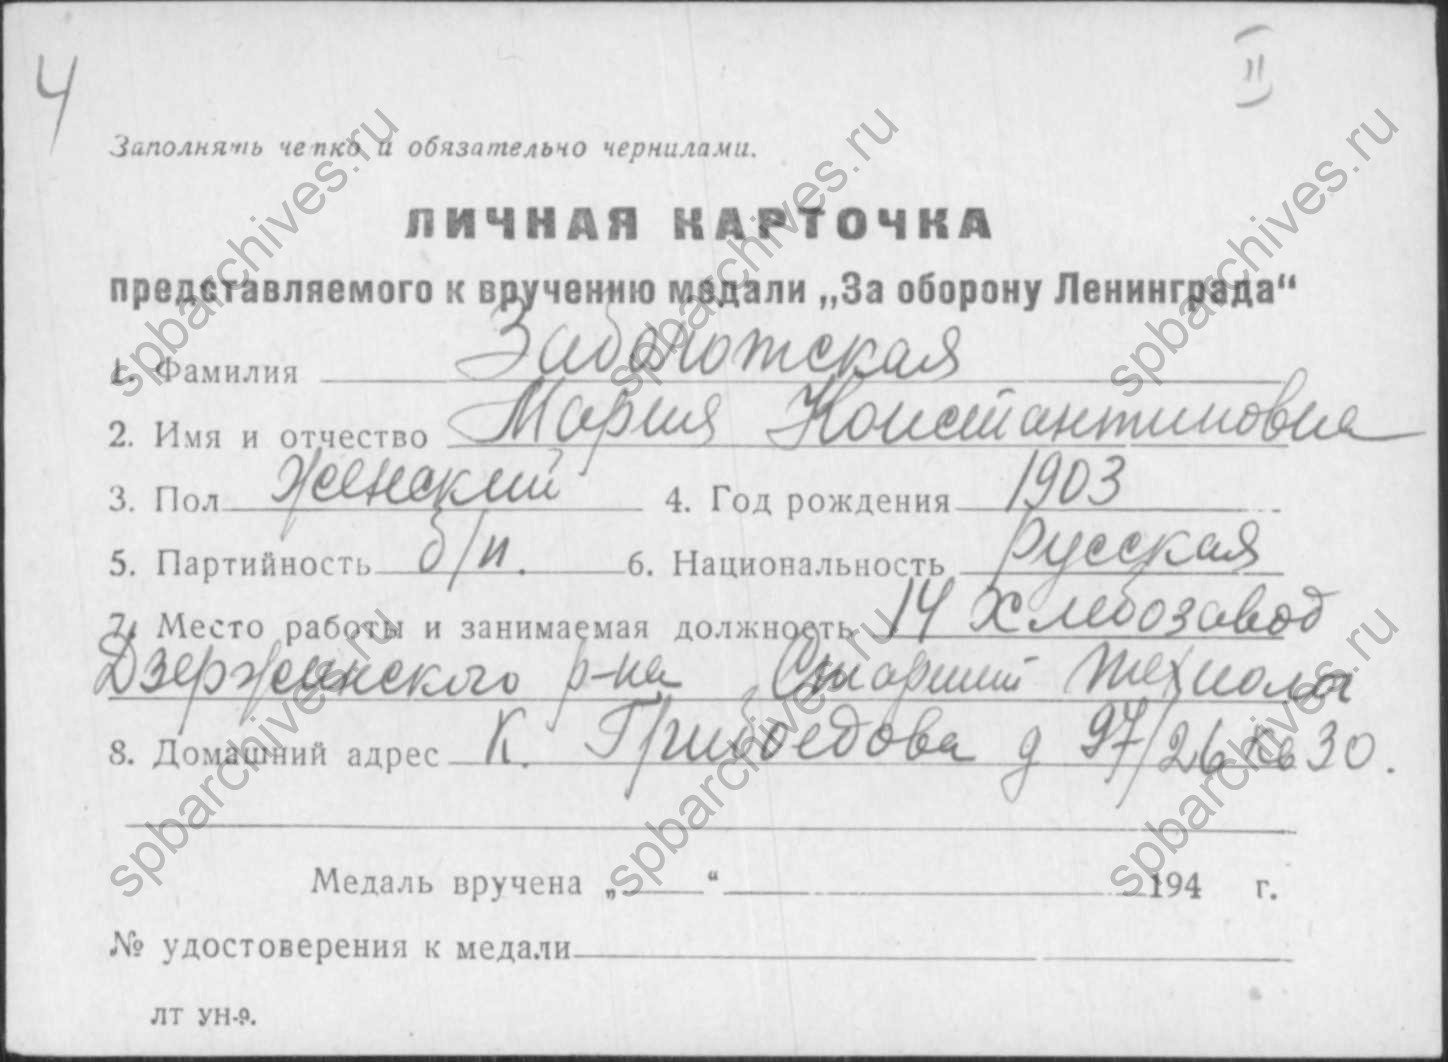 4
II
Заполнять четко и обязательно чернилами.
ЛИЧНАЯ КАРТОЧКА
представляемого к вручению медали „За оборону Ленинграда“
1. Фамилия Заболотская
2. Имя и отчество Мария Константиновна
3. Пол Женский 4. Год рождения 1903
5. Партийность б/п. 6. Национальность Русская
7. Место работы и занимаемая должность 14 Хлебозавод
Дзержинского р-на Старший Технолог
8. Домашний адрес К. Грибоедова д 97/26 кв 30.
Медаль вручена „ “ 194 г.
№ удостоверения к медали
ЛТ УН-9.
spbarchives.ru
spbarchives.ru
spbarchives.ru
spbarchives.ru
spbarchives.ru
spbarchives.ru